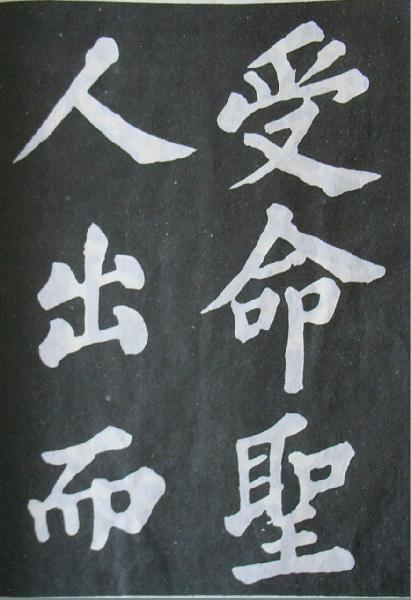 受命聖
人出而